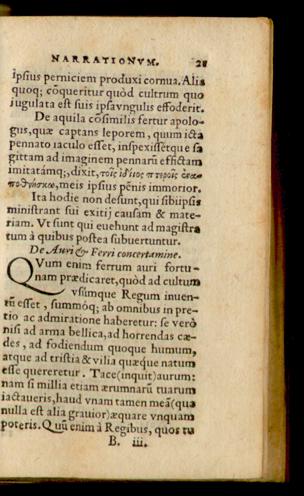 NARRATIONVM. 21
ipsius perniciem produxi cornua. Alia
quoq; cōqueritur quòd cultrum quo
iugulata est suis ipsa vngulis effoderit.
De aquila cōsimilis fertur apolo-
gus, quæ captans leporem, quum icta
pennato iaculo esset, inspexissetque sa
gittam ad imaginem pennarū effictam
imitatámq;, dixit, τοῖς ἰδίοις πτεροῖς
meis ipsius pēnis immorior.
Ita hodie non desunt, qui sibiipsis
ministrant sui exitij causam & mate-
riam. Vt sunt qui euehunt ad magistra
tum à quibus postea subuertuntur.
De Auri & Ferri concertamine.
QVum enim ferrum auri fortu-
nam prædicaret, quòd ad cultum
vsúmque Regum inuen-
tū esset, summóq; ab omnibus in pre-
tio ac admiratione haberetur: se verò
nisi ad arma bellica, ad horrendas cæ-
des, ad fodiendum quoque humum,
atque ad tristia & vilia quæque natum
esse quereretur. Tace (inquit) aurum:
nam si millia etiam ærumnarū tuarum
iactaueris, haud vnam tamen meā (qua
nulla est alia grauior) æquare vnquam
poteris. Quū enim à Regibus, quos tu
B. iii.